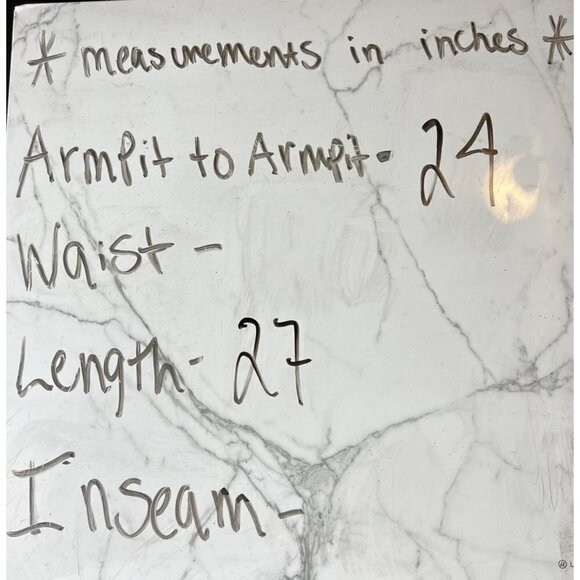 * measurements in inches *
Armpit to Armpit- 24
Waist -
Length- 27
Inseam -